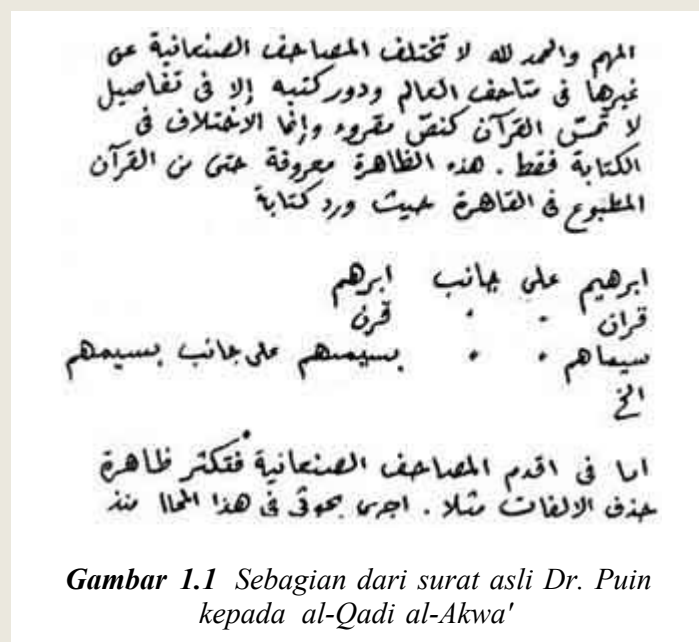 المهم والحمد لله لا تختلف المصاحف الصنعانية عن
غيرها فى متاحف العالم ودور كتبه إلا فى تفاصيل
لا تمسّ القرآن كنصّ مقروء وإنما الاختلاف فى
الكتابة فقط . هذه الظاهرة معروفة حتى من القرآن
المطبوع فى القاهرة حيث ورد كتابة
ابرهيم على جانب ابرهم
قران " " قرن
سيماهم " " بسيمهم على جانب بسيمهم
الخ
اما فى اقدم المصاحف الصنعانية فتكثر ظاهرة
حذف الالفات مثلا . اجرى بحوثى فى هذا المجال منذ
Gambar 1.1 Sebagian dari surat asli Dr. Puin
kepada al-Qadi al-Akwa'